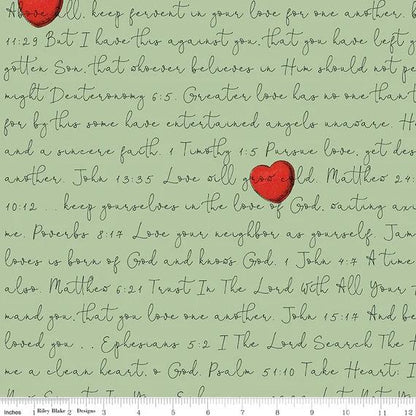 Above all, keep fervent in your love for one another.
11:29 But I have this against you, that you have left y
gotten Son, that whoever believes in Him should not pe
might Deuteronomy 6:5. Greater love has no one than t
for by this some have entertained angels unaware. H
and a sincere faith. 1 Timothy 1:5 Pursue love, yet des
another. John 13:35 Love will grow cold. Matthew 24:
10:12 ... keep yourselves in the love of God, waiting anxi
me. Poverbs 8:17 Love your neighbor as yourself. Jam
loves is born of God and knows God. 1 John 4:7 A time
also. Matthew 6:21 Trust In The Lord With All Your
mand you, that you love one another. John 15:17 And be
loved you ... Ephesians 5:2 I The Lord Search The H
me a clean heart, o God. Psalm 51:10 Take Heart; I
Inches 1 Riley Blake 2 Designs 3 4 5 6 7 8 9 10 11 12